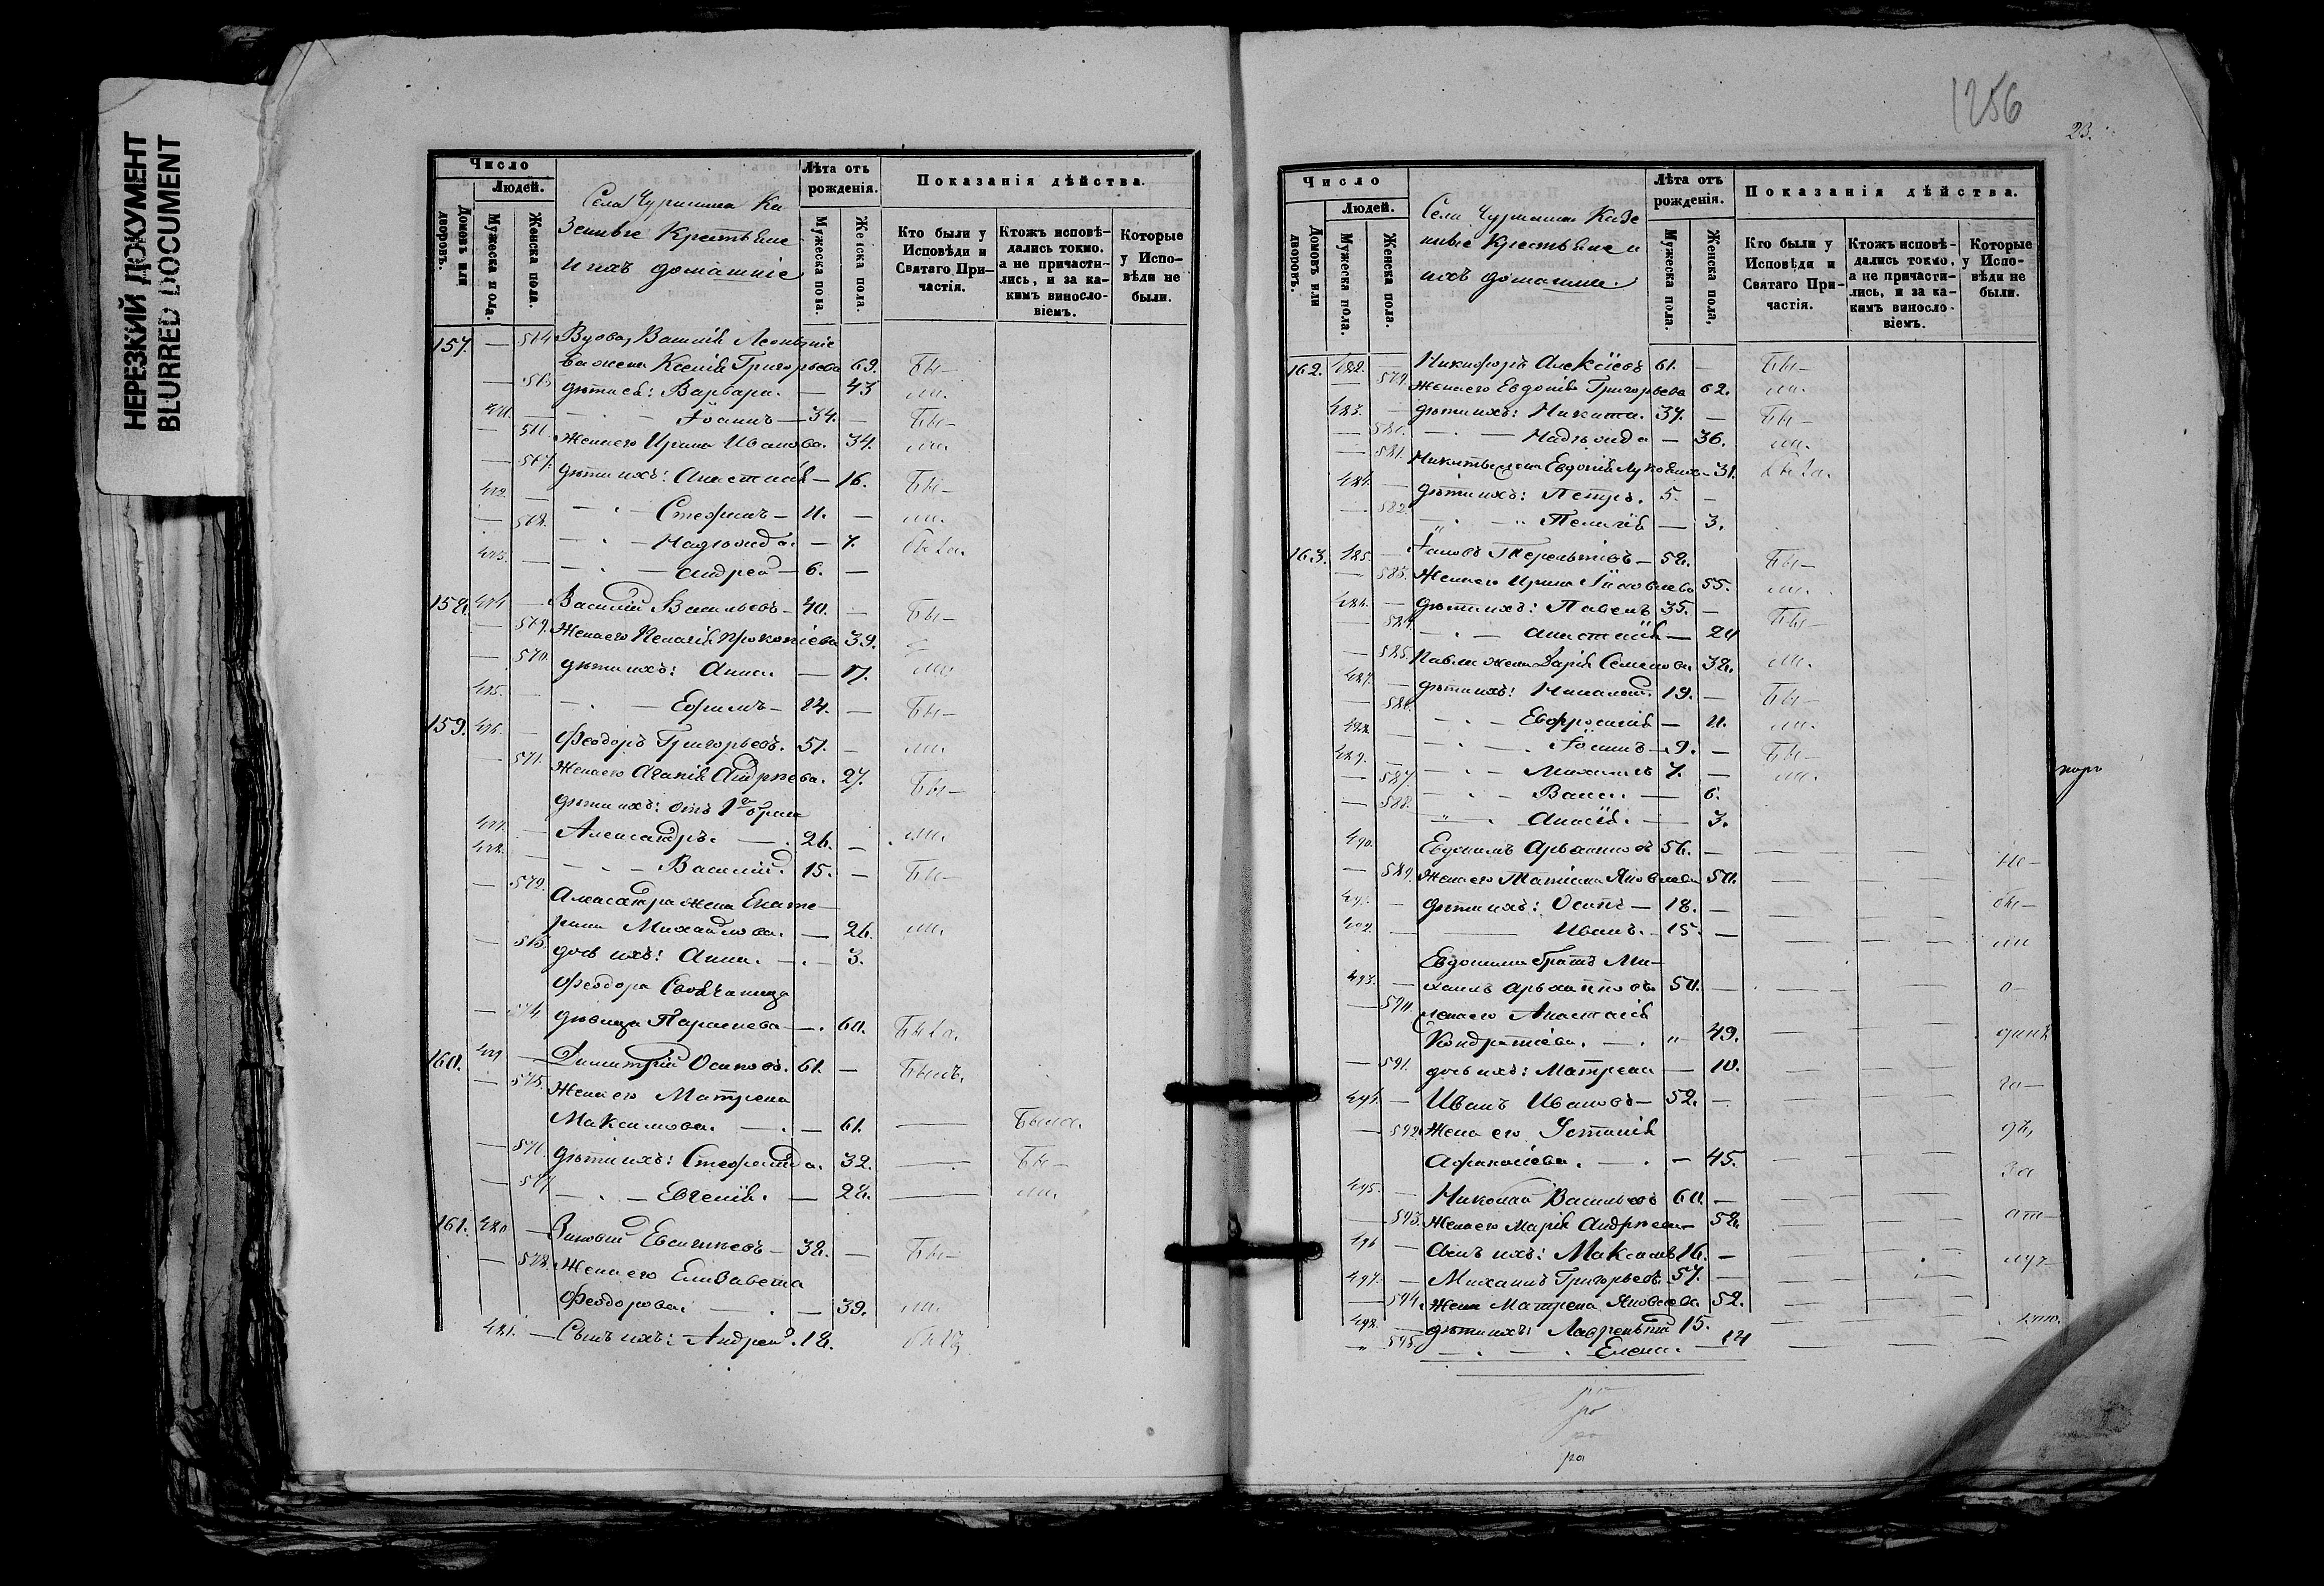 НЕРЕЗКИЙ ДОКУМЕНТ
BLURRED DOCUMENT
Число
Людей.
Домовъ или дворовъ.
Мужеска пола.
Женска пола.
Села Чурашева Ка
зенные Крестьяне
и ихъ домашніе
Лѣта отъ рожденія.
Мужеска пола.
Женска пола.
Показанія дѣйства.
Кто были у Исповѣди и Святаго Причастія.
Ктожъ исповѣдались токмо. а не причастились, и за какимъ винословіемъ.
Которые у Исповѣди не были.
157. — 564 Вдова, Василія Леонтіе
ва жена Ксенія Григорьева 63. Бы–
— 565 дѣти ея: Варвара. — 43 ли.
471. — Іоаннъ — 34. — Бы–
— 566. Жена его Ирина Иванова. 34. ли.
— 567. дѣти ихъ: Анастасія — 16. Бы–
472. — Стефанъ — 11. — ли.
— 568. Надежда. — 7. была.
473. — Андрей — 6. —
158. 474 — Василій Васильевъ — 40. — Бы–
— 569. Жена его Пелагія Прокопіева 39.
— 570. дѣти ихъ: Анна. — 17. ли.
475. — Ефимъ — 14. — Бы–
159. 476. — Феодоръ Григорьевъ. 51. — ли.
— 571. Жена его Агапія Андреева. 27. Бы–
дѣти ихъ: отъ 1го брака
477. — Александръ. — 26. — ли.
478. — Василій. 15. — Бы–
— 572. Александра жена Екате–
рина Михайлова. — 26. ли.
— 573. дочь ихъ: Анна. — 3.
Феодора Свояченица
— 574. дѣвица Параскева — 60. Была.
160. 479 — Димитрій Осиповъ. 61. — Былъ.
— 575. Жена его Матрена
Максимова. — 61. — Была.
— 576. дѣти ихъ: Стефанида. 32. — Бы–
— 577 — Евгенія. — 28. — ли.
161. 480. — Зиновій Евсигнеевъ — 38. — Бы–
— 578. Жена его Елизавета
Феодорова. — 39. ли.
481. — Сынъ ихъ: Андрей. 18. былъ
1256
23.
Число
Людей.
Домовъ или дворовъ.
Мужеска пола.
Женска пола.
Села Чурашева Казе
нные Крестьяне и
ихъ домашніе.
Лѣта отъ рожденія.
Мужеска пола.
Женска пола,
Показанія дѣйства.
Кто были у Исповѣди и Святаго Причастія.
Ктожъ исповѣдались токмо, а не причастились, и за какимъ винословіемъ.
Которые у Исповѣди не были.
162. 482. — Никифоръ Алексіевъ 61. — Бы–
— 579. Жена его Евдокія Григорьева 62. ли.
483. — дѣти ихъ: Никита. 37. — Бы–
— 580. — Надежда — 36. ли.
— 581. Никиты жена Евдокія 31. была.
484. — дѣти ихъ: Петръ. 5. —
— 582. — Пелагія — 3.
163. 485. — Іаковъ Терентіевъ — 58. Бы–
— 583. Жена его Ирина Іаковлева 55. ли.
486. — дѣти ихъ: Павелъ 35. — Бы–
— 584. — Анастасія — 24
— 585. Павла жена Дарія Семенова 38. ли.
487. — дѣти ихъ: Николай. 19. — Бы–
— 586. — Евфросинія — 11. ли.
488. — Іоаннъ — 9. — Бы–
489. — Михаилъ 7. — ли.
— 587. — Васса. — 6.
— 588. — Анисія. — 3.
490. Евдокимъ Архипповъ 56. — не–
— 589. Жена его Татіана Яковлева 50.
491. — дѣти ихъ: Осипъ — 18. — бы–
492. — Иванъ. — 15. — ли
Евдокима братъ Ми–
493. — хаилъ Архипповъ 50. — о–
— 590. жена его Анастасія
Кондратіева. — 49. динъ
— 591. дочь ихъ: Матрена — 10.
494. — Иванъ Ивановъ — 52. — го–
— 592. Жена его Устинія дъ,
Афанасіева. — 45. за
495. — Николай Васильевъ 60. —
— 593. Жена его Марія Андреева — 58. от–
496 — Сынъ ихъ: Максимъ 16. —
497. — Михаилъ Григорьевъ. 57. — луч–
— 594. Жена Матрена Яковлева 52.
498. — дѣти ихъ: Лаврентій 15. кою.
" 595. — Елена. — 14
ро
ро
ра